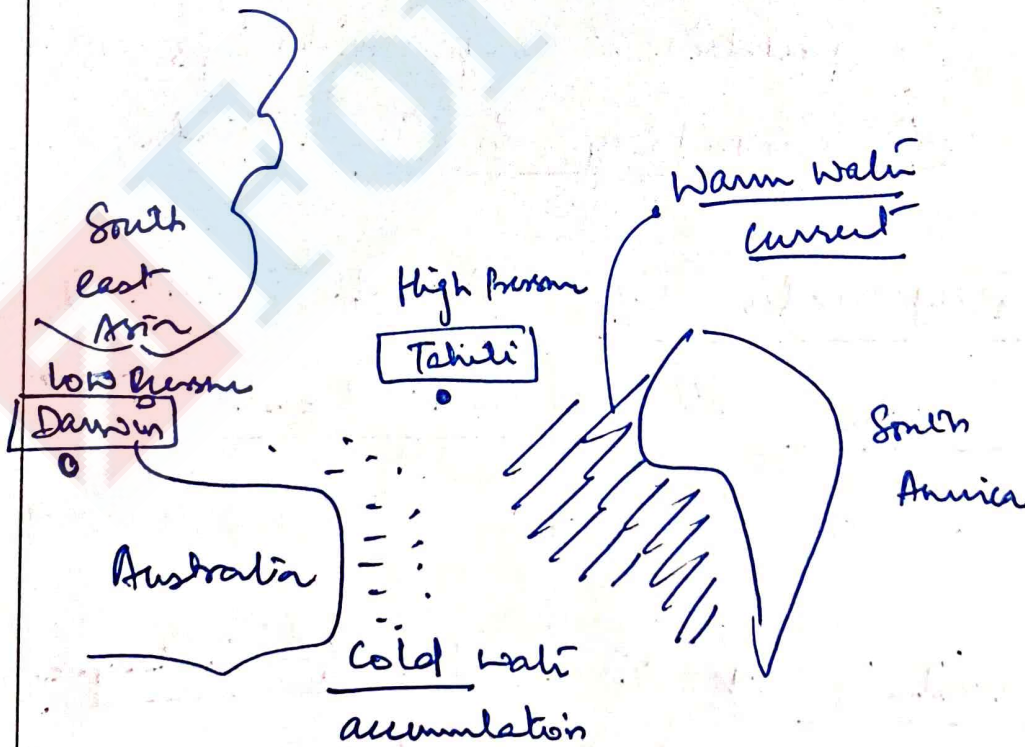 For
South
east
Asia
Low Pressure
Darwin
Australia
High Pressure
Tahiti
Warm water
current
South
America
Cold water
accumulation